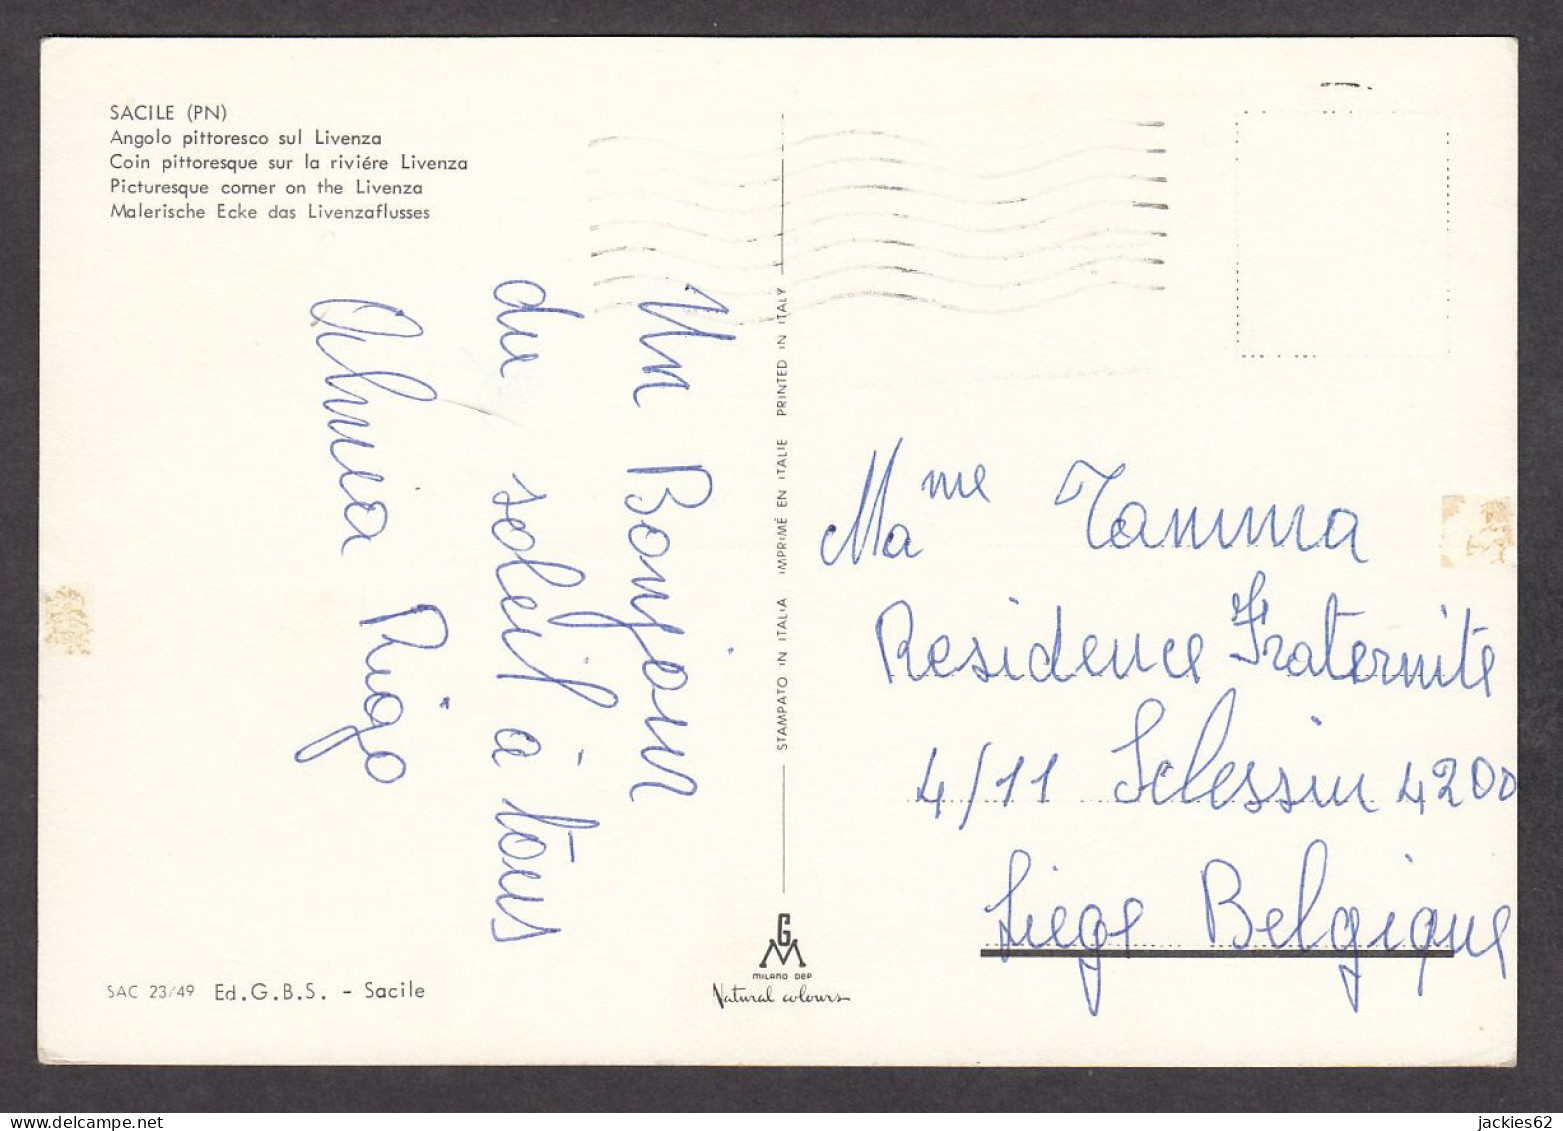 SACILE (PN)
Angolo pittoresco sul Livenza
Coin pittoresque sur la riviére Livenza
Picturesque corner on the Livenza
Malerische Ecke das Livenzaflusses
Un Bonjour
du soleil à tous
Rigo
STAMPATO IN ITALIA IMPRIMÉ EN ITALIE PRINTED IN ITALY
Mame Tamma
Residence Fraternite
4/11 Sclessin 4200
Liege Belgique
GM
MILANO DEP
Natural colours
SAC 23/49 Ed.G.B.S. - Sacile
jackies62